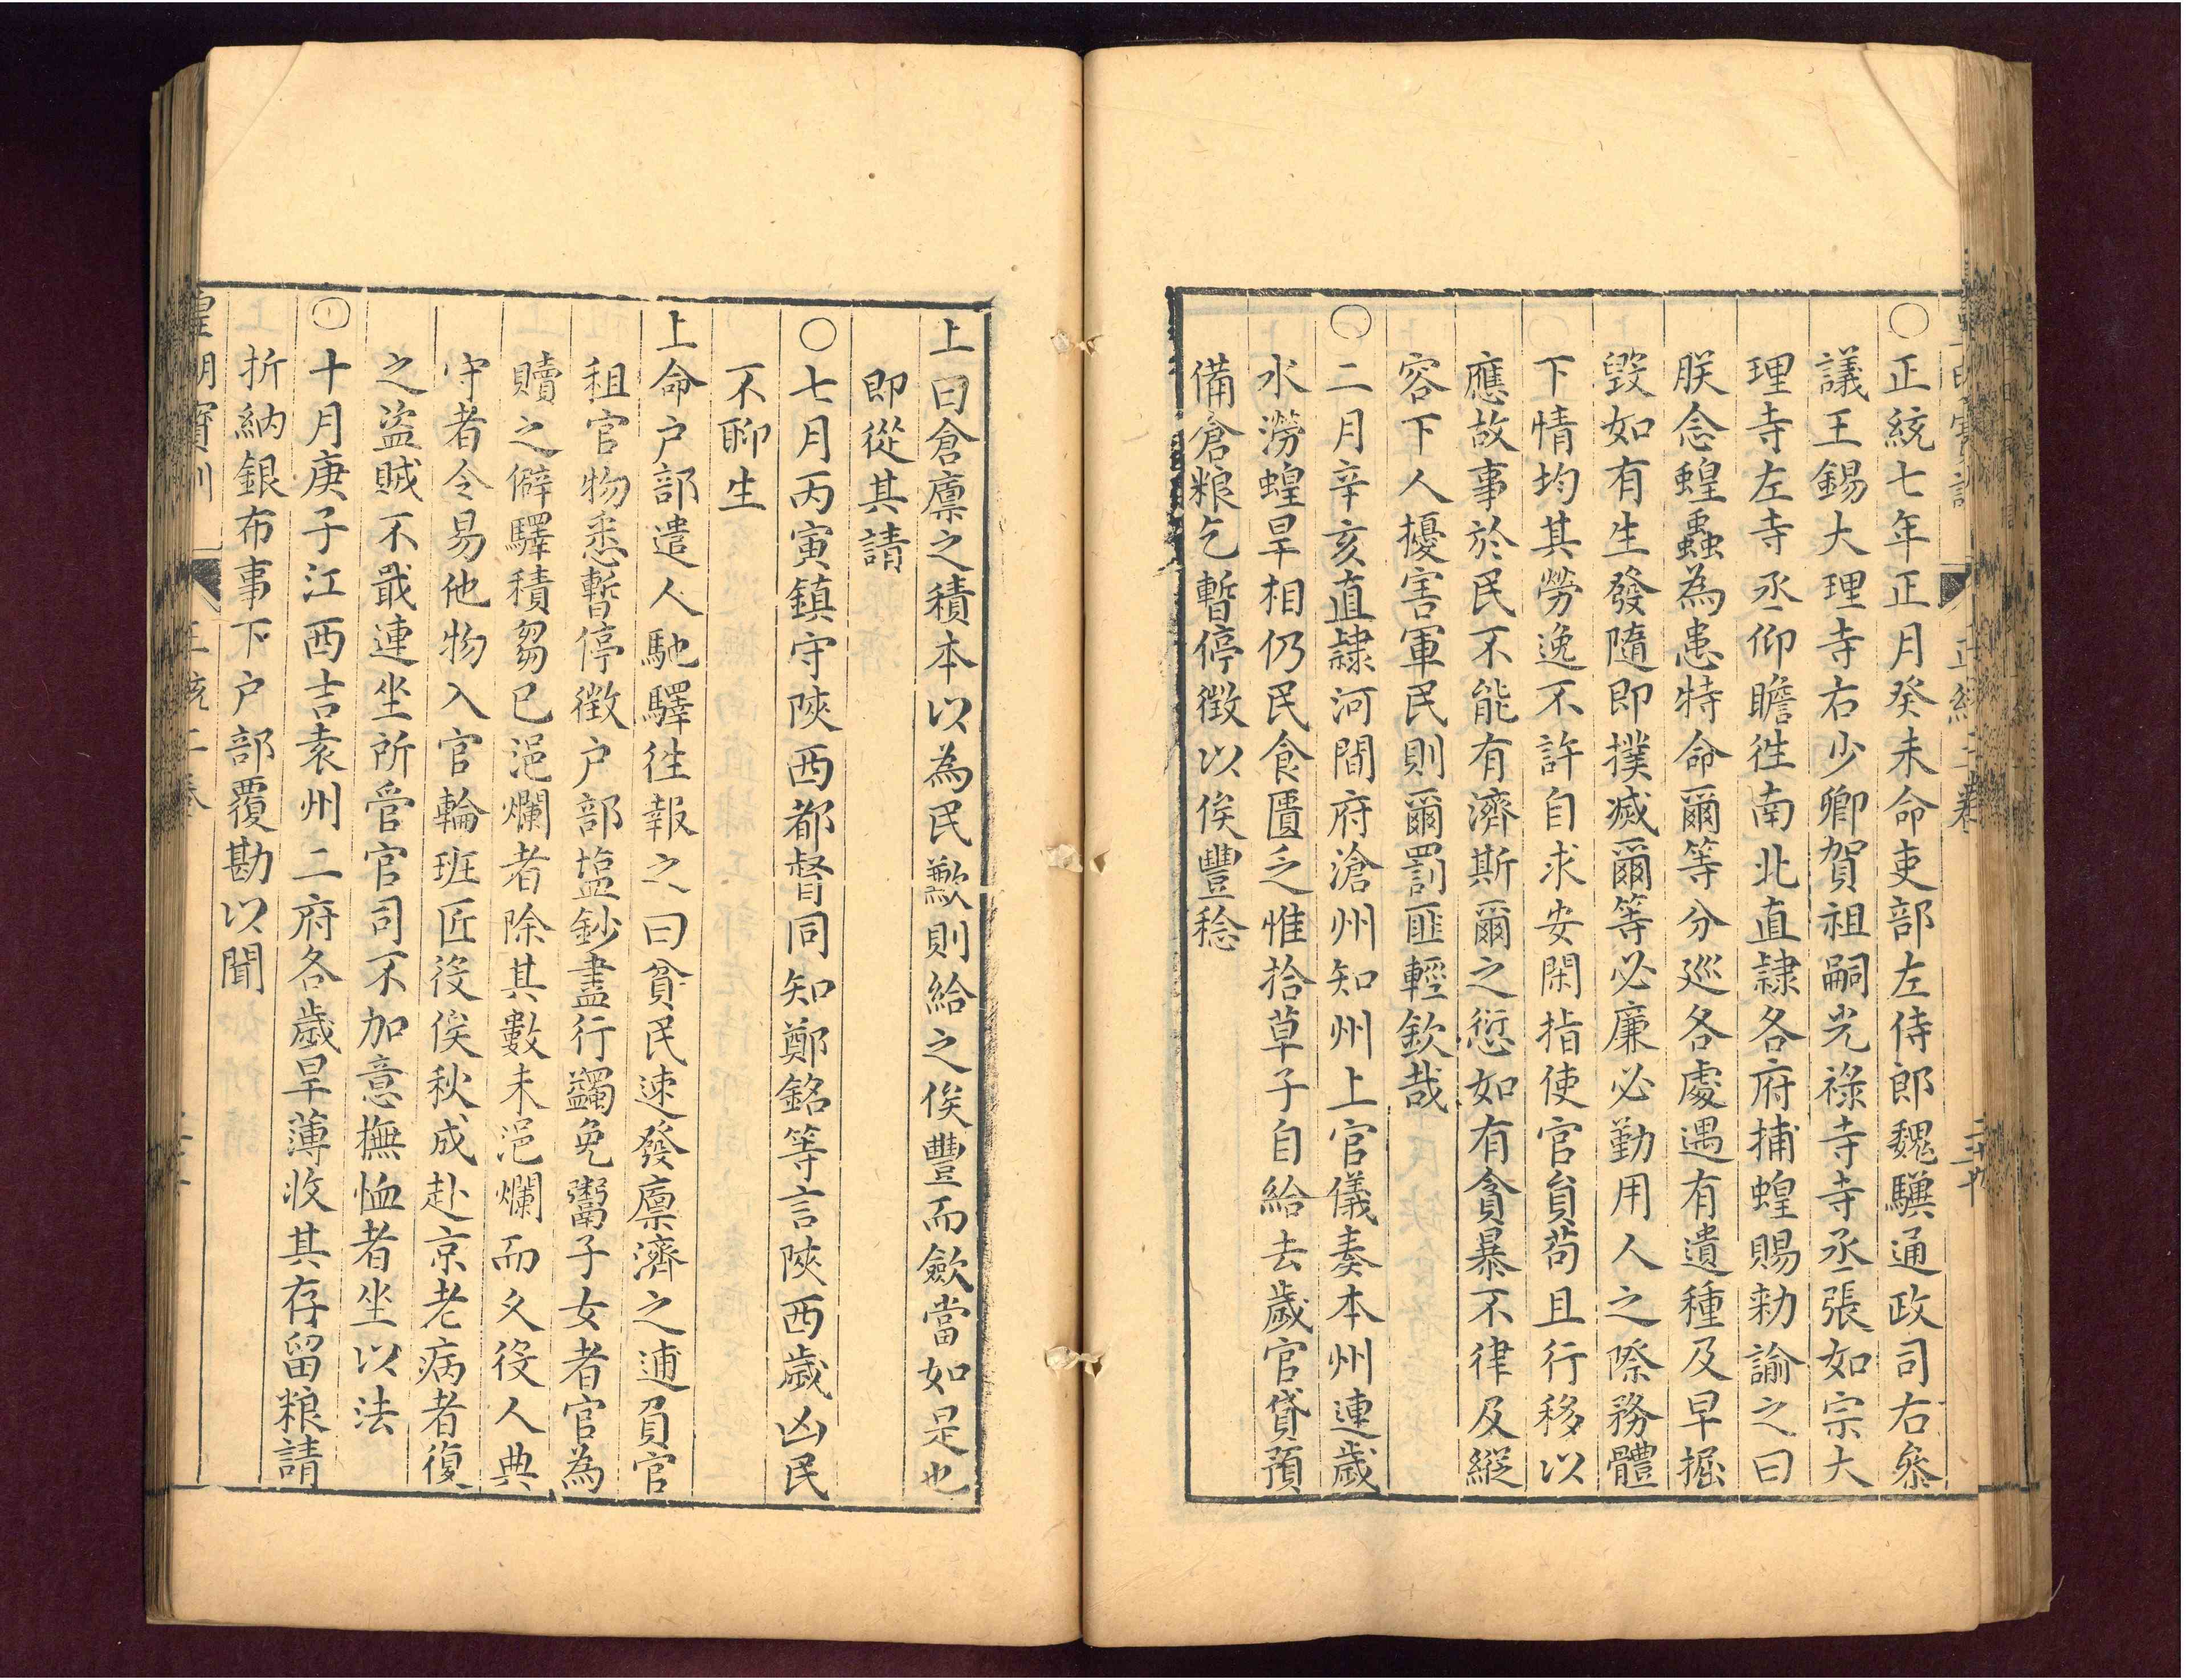 ○正統七年正月癸未命吏部左侍郎魏驥通政司右叅
議王錫大理寺右少卿賀祖嗣光祿寺寺丞張如宗大
理寺左寺丞仰瞻徃南北直隷各府捕蝗賜勑諭之曰
朕念蝗蟲為患特命爾等分廵各處遇有遺種及早掘
毀如有生發隨即撲滅爾等必廉必勤用人之際務體
下情均其勞逸不許自求安閑指使官貟苟且行移以
應故事於民不能有濟斯爾之愆如有貪暴不律及縱
容下人擾害軍民則爾罰匪輕欽哉
○二月辛亥直隷河間府滄州知州上官儀奏本州連歲
水澇蝗旱相仍民食匱乏惟拾草子自給去歲官貸預
備倉粮乞暫停徵以俟豐稔
上曰倉廪之積本以為民歉則給之俟豐而歛當如是也
即從其請
○七月丙寅鎮守陜西都督同知鄭銘等言陜西歲凶民
不聊生
上命户部遣人馳驛徃報之曰貧民速發廪濟之逋負官
租官物悉暫停徵户部塩鈔盡行蠲免鬻子女者官為
贖之僻驛積芻已浥爛者除其數未浥爛而乆役人典
守者令易他物入官輪班匠役俟秋成赴京老病者復
之盜賊不戢連坐所管官司不加意撫恤者坐以法
○十月庚子江西吉袁州二府各歲旱薄收其存留粮請
折納銀布事下户部覆勘以聞
皇明寶訓 正統二卷